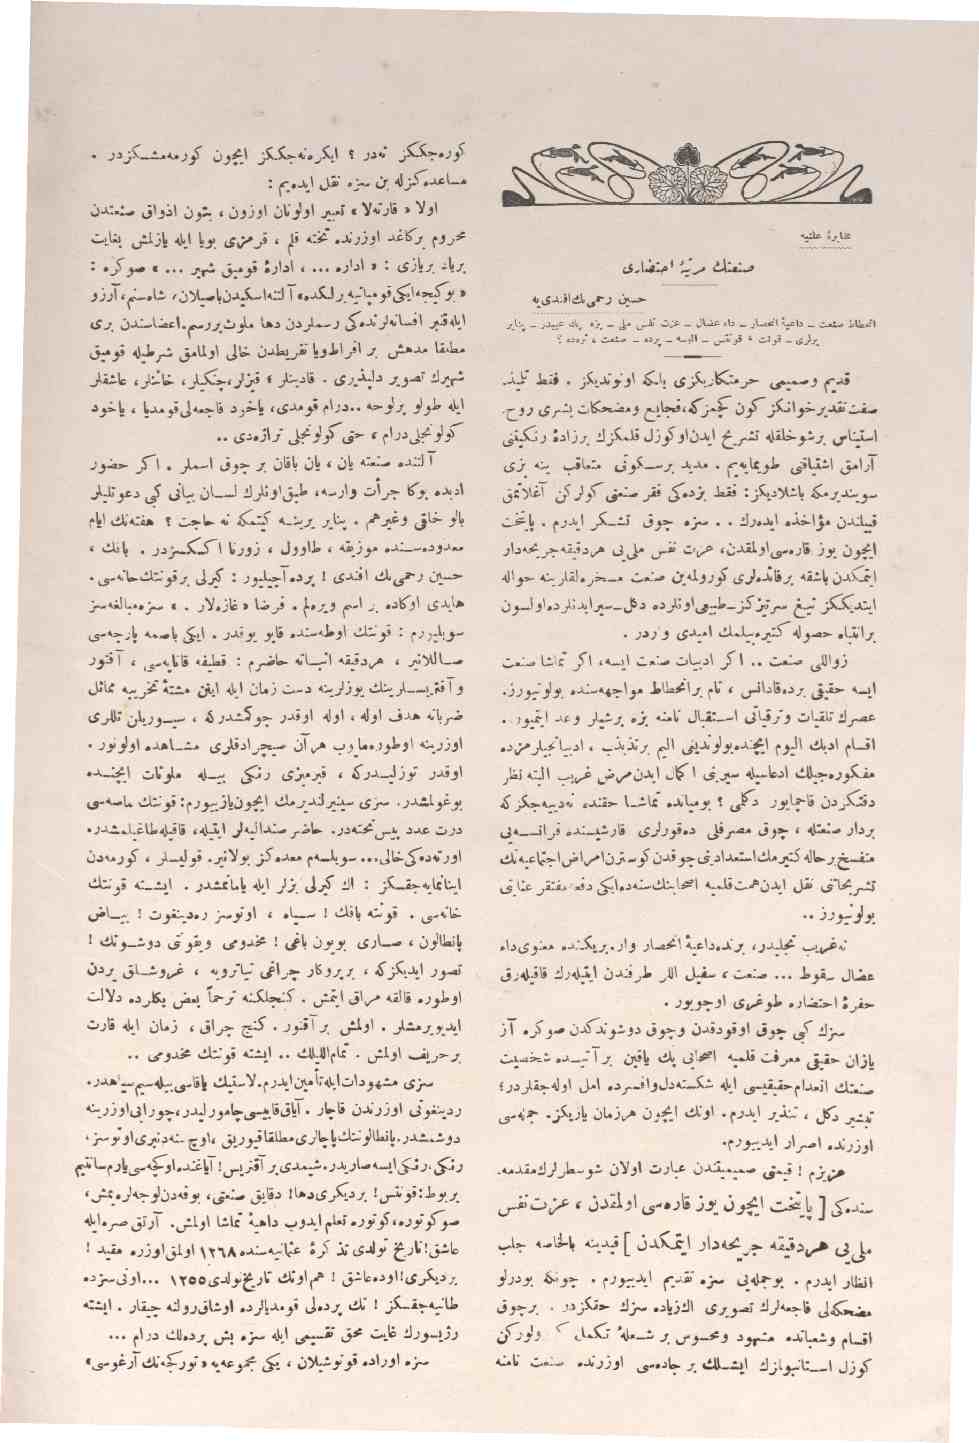 مخابرهٔ علنیه
صنعتك مرتبهٔ احتضاری
حسین رحمی بك افندی‌یه
انحطاط صنعت ـ داعیهٔ انحصار ـ داء عضال ـ عزت نفس ملی ـ بزه پك عیبدر ـ پنایر
یرلری ـ قونت ، قونتس ـ البسه ـ پرده ـ صنعت ، نره‌ده ؟
قدیم وصمیمی حرمتكاریكزی بلكه اونوتدیكز . فقط تلمیذ
صفت تقدیرخوانكز كون كچمزكه، فجایع ومضحكات بشری روح
استیناس برشوخلقله تشریح ایدن اوكوزل قلمكزك برزادهٔ رنكینی
آرامق اشتیاقنی طویمایه‌یم . مدید برسكوتی متعاقب ینه بزی
سویندیرمكه باشلادیكز: فقط بزده‌كی فقر صنعتی كولركن آغلاتمق
قبیلندن مؤاخذه ایده‌رك .. سزه چوق تشكر ایدرم . پایتخت
ایچون یوز قاره‌سی اولمقدن، عزت نفس ملی‌یی هردقیقه جریحه‌دار
ایتمكدن باشقه برفائده‌لری كورولمه‌ین صنعت مسخره‌لقلرینه حواله
ایتدیككز تیغ سرتیزكز ـ طبیعی اونلرده دكل ـ سیرایدنلرده اولسون
برانتباه حصوله كتیره‌بیلمك امیدی واردر .
زواللی صنعت .. اكر ادبیات صنعت ایسه، اكر تماشا صنعت
ایسه حقیقی برده‌قادانس ، تام برانحطاط مواجهه‌سنده بولونیورز.
عصرك تلقیات وترقیاتی استقبال نامنه بزه برشیلر وعد ایتمیور.
اقسام ادبك الیوم ایچنده بولوندیغی الیم برتذبذب ، ادبیاتجیلرمزده
مفكوره‌جیلك ادعاسیله سیرینی اكمال ایدن مرض غریب البته نظر
دقتكزدن قاچمایور دكلمی ؟ بومیانده تماشا حقنده نه‌دییه‌جكزكه
بردار صنعتله ، چوق مصرفلی ده‌قورلری قارشیسنده فرانسه‌یی
متفسخ برحاله كتیرمك استعدادینی چوقدن كوسترن امراض اجتماعیه‌نك
تشریحاتنی نقل ایدن همت قلمیه اصحابنك سنه‌ده‌ایكی دفعه مفتقر عنایتی
بولونیورز ..
نه‌غریب تجلیدر، برنده داعیهٔ انحصار وار. بریكنده معنوی داء
عضال سقوط ... صنعت، سفیل اللر طرفندن ایتیله‌رك قاقیله‌رق
حفرهٔ احتضاره طوغری اوچویور .
سزك كبی چوق اوقودقدن وچوق دوشوندكدن صوكره آز
یازان حقیقی معرفت قلمیه اصحابی پك یاقین برآتیده شخصیت
صنعتك انعدام حقیقیسی ایله شكسته‌دل وافسرده امل اوله‌جقلردر؛
تبشیر دكل ، تنذیر ایدرم. اونك ایچون هرزمان یازیكز. جمله‌سی
اوزرنده اصرار ایدییورم.
عزیزم ! قیمتی صمیمیتندن عبارت اولان شوسطرلرك مقدمه
سنده‌كی [ پایتخت ایچون یوز قاره‌سی اولمقدن ، عزت نفس
ملی‌یی هردقیقه جریحه‌دار ایتمكدن ] قیدینه بالخاصه جلب
انظار ایدرم . بوجمله‌یی سزه تقدیم ایدییورم . چونكه بودرلو
مضحكه‌لی فاجعه‌لرك تصویری اك‌زیاده سزك حقكزدر . برچوق
اقسام وشعباتنده مشهود ومحسوس بر شعلهٔ تكمل كورولوركن
كوزل استانبولمزك ایشلك برجاده‌سی اوزرنده صنعت نامنه
كوره‌جككز نه‌در ؟ ایكره‌نه‌جككز ایچون كورمه‌مشسكزدر .
مساعده‌كزله بن سزه نقل ایده‌یم :
اولا « قارته‌لا » تعبیر اولونان اوزون ، بتون اذواق صنعتدن
محروم بركاغد اوزرنده تخته قلم ، قرمزی بویا ایله یازلمش بغایت
برباد بریازی : « اداره ... ، ادارهٔ قومیق شهیر ... » صوكره :
« بوكیجه ایكی قومپانیه برلكده » آلتنه اسكیدن باصیلان، شاه‌سنم، آرزو
ایله‌قنبر افسانه‌لرنده‌كی رسملردن دها ملوث بررسم. اعضاسندن بری
مطلقا مدهش بر افراط ویا تفریطدن خالی اولمامق شرطیله قومیق
شهیرك تصویر دلپذیری . قادینلر ، قیزلر، چنكیلر، خائنلر، عاشقلر
ایله طولو برلوحه ..درام قومدی، یاخود فاجعه‌لی قومدیا ، یاخود
كولونجلی درام ، حتی كولونجلی تراژه‌دی ..
آلتنده صنعته یان ، یان باقان بر چوق اسملر . اكر حضور
ادبده بوكا جرأت وارسه، طبق اونلرك لسان بیانی كبی دعوتلیلر
بالو خاقی وغیرهم . پنایر یرینه كیتمكه نه حاجت ؟ هفته‌نك ایام
معدوده‌سنده موزیقه ، طاوول ، زورنا اكسكسزدر . باقك ،
حسین رحمی‌بك افندی ! پرده آچیلیور : كیرلی برقونتك خانه‌سی.
هایدی اوكاده بر اسم ویره‌لم . فرضا « غازه‌لار . » سزه مبالغه‌سز
سویلیورم : قونتك اوطه‌سنده قاپو یوقدر . ایكی باصمه پارچه‌سی
صاللانیر ، هردقیقه اثباته حاضرم : قطیفه قاناپه‌سی ، آقتور
وآقتریسلرینك یوزلرینه دست زمان ایله اینن مشتهٔ تخریبه مماثل
ضرباته هدف اوله ، اوله اوقدر چوكمشدركه ، سیوریلن تللری
اوزرینه اوطوره‌مایوب هرآن سیچرادقلری مشاهده اولونور .
اوقدر توزلیدركه ، قیرمیزی رنكی بیله ملوثات ایچنده
بوغولمشدر. سزی سینیرلندیرمك ایچون یازییورم: قونتك ماصه‌سی
درت عدد بیس تخته‌در. حاضر صندالیه‌لر ایتیله، قاقیله طاغیلمشدر.
اورته‌ده‌كی خالی... سویلسه‌م معده‌كز بولانیر. قولیسلر ، كورمه‌دن
اینانمایه‌جقسكز : اك كیرلی بزلر ایله یامانمشدر . ایشته قونتك
خانه‌سی . قونته باقك ! سیاه ، اوتوسز ره‌دینغوت ! بیاض
پانطالون ، صاری بویون باغی ! مخدومی ویقونتی دوشونك !
تصور ایدیكزكه ، بربروكار چراغی تیاترویه ، غروشلق یردن
اوطوره قالقه مراق ایتمش . كنجلكنه ترحماً بعض بكلرده دلالت
ایدیویرمشلر . اولمش بر آقتور . كنج چراق ، زمان ایله قارت
برحریف اولمش . تمام‌اللیلك .. ایشته قونتك مخدومی ..
سزی مشهودات ایله تأمین ایدرم. لاستیك یاقاسی بیله سیم‌سیاهدر.
ردینغوتی اوزرندن قاچار . آیاق قابیسی چامورلیدر، چورابی اوزرینه
دوشمشدر. پانطالوننك پاچالری مطلقا قیوریق ، اوچ سنه‌دنبری اوتوسز.
رنكی، رنكی ایسه صاریدر. شیمدی برآقتریس! آیاغنده اوكچه‌سی یارم سانتیم
بربوط: قونتس! بردیكری دها! دقایق صنعتی، بوفه‌دن لوجه‌لره‌یمش،
صو كوتوره، كوتوره تعلم ایدوب داهیهٔ تماشا اولمش. آرتق صره‌ایله
عاشق! تاریخ تولدی تذكرهٔ عثمانیه‌سنده ١٢٦٨ اولمق اوزره مقید !
بردیكری! اوده عاشق ! هم اونك تاریخ تولدی ١٢٥٥ ...اونی سزده
طانیه‌جقسكز ! تك پرده‌لی قومدیالرده اوشاق رولنه چیقار . ایشته
رژیسورك غایت محق تقسیمی ایله سزه بش پرده‌لك درام ...
سزه اوراده قونوشیلان ، یكی مجموعه‌یه « توركجه‌نك آرغوسی»